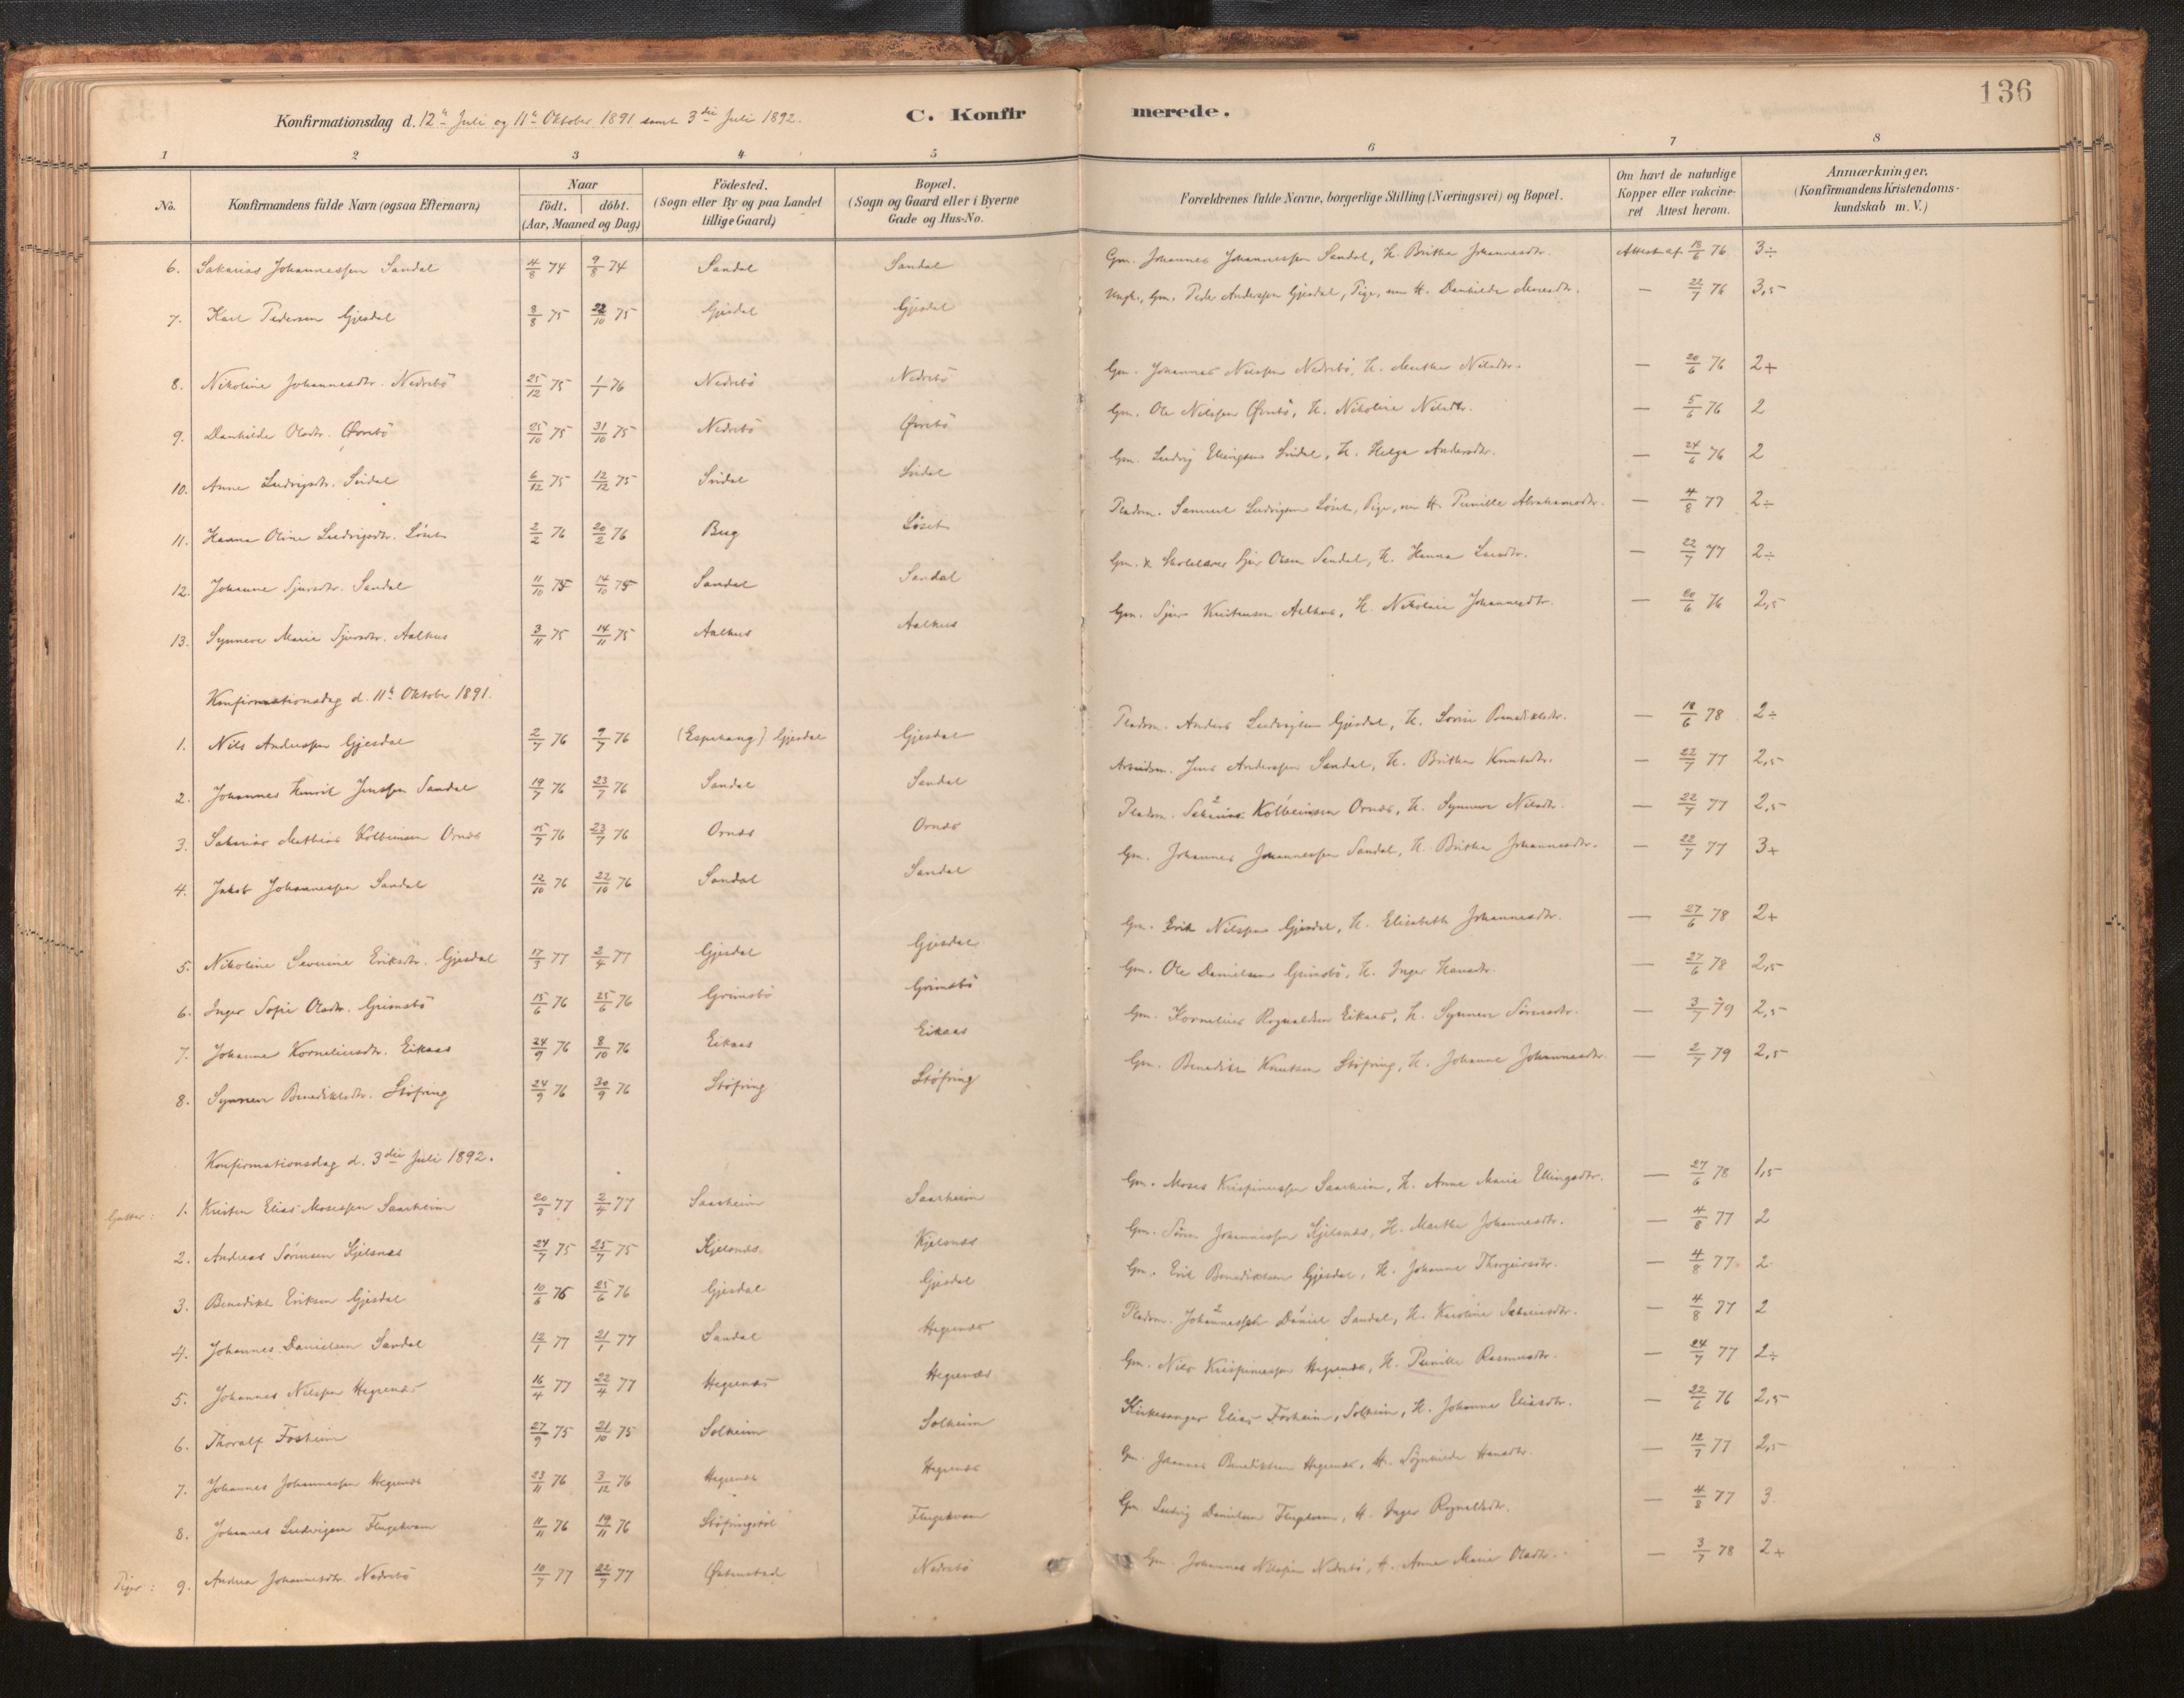 136
Konfirmationsdag d. 12te Juli og 11te Oktober 1891 samt 3die Juli 1892. C. Konfirmerede.
1 2 3 4 5 6 7 8
No. Konfirmandens fulde Navn (ogsaa Efternavn) Naar født. døbt. (Aar, Maaned og Dag) Fødested. (Sogn eller By og paa Landet tillige Gaard) Bopæl. (Sogn og Gaard eller i Byerne Gade og Hus-No. Forældrenes fulde Navne, borgerlige Stilling (Næringsvei) og Bopæl. Om havt de naturlige Kopper eller vakcineret Attest herom. Anmærkninger. (Konfirmandens Kristendomskundskab m. V.)
6. Sakarias Johannessen Sandal 4/8 74 9/8 74 Sandal Sandal Gm. Johannes Johannessen Sandal, H. Brithe Johannesdtr. Attest af 18/6 76 3÷
7. Karl Pedersen Gjesdal 8/8 75 22/10 75 Gjesdal Gjesdal Ungk., Gm. Peder Anderssen Gjesdal, Pige, nu H. Danhilde Mosesdtr. — 22/7 76 3,5
8. Nikoline Johannesdtr. Nedrebö 25/12 75 1/1 76 Nedrebö Nedrebö Gm. Johannes Nilssen Nedrebö, H. Marthe Nilsdtr. — 20/6 76 2+
9. Danhilde Olsdtr. Øvrebö 25/10 75 31/10 75 Nedrebö Øvrebö Gm. Ole Nilssen Øvrebö, H. Nikoline Nilsdtr. — 5/6 76 2
10. Anne Ludvigsdtr. Svidal 6/12 75 12/12 75 Svidal Svidal Gm. Ludvig Ellingsen Svidal, H. Helga Andersdtr. — 24/6 76 2
11. Hanna Oline Ludvigsdtr. Löset 2/2 76 20/2 76 Bug Löset Pladsm. Samuel Ludvigsen Löset, Pige, nu H. Pernille Abrahamsdtr. — 4/8 77 2÷
12. Johanne Sjursdtr. Sandal 11/10 75 14/10 75 Sandal Sandal Gm. & Skolelærer Sjur Olsen Sandal, H. Hanna Larsdtr. — 22/7 77 2÷
13. Synneve Marie Sjursdtr. Aalhus 3/11 75 14/11 75 Aalhus Aalhus Gm. Sjur Kristensen Aalhus, H. Nikoline Johannesdtr. — 20/6 76 2,5
Konfirmationsdag d. 11te Oktober 1891.
1. Nils Anderssen Gjesdal 2/7 76 9/7 76 (Espehaug) Gjesdal Gjesdal Pladsm. Anders Ludvigsen Gjesdal, H. Sørine Benediktsdtr. — 18/6 78 2÷
2. Johannes Henrik Jenssen Sandal 19/7 76 23/7 76 Sandal Sandal Arbeidsm. Jens Anderssen Sandal, H. Brithe Knutsdtr. — 22/7 77 2,5
3. Sakarias Mathias Kolbeinsen Ornæs 15/7 76 23/7 76 Ornæs Ornæs Pladsm. Sakarias Kolbeinsen Ornæs, H. Synneve Nilsdtr. — 22/7 77 2,5
4. Jakob Johannessen Sandal 12/10 76 22/10 76 Sandal Sandal Gm. Johannes Johannessen Sandal, H. Brithe Johannesdtr. — 22/7 77 3+
5. Nikoline Severine Eriksdtr. Gjesdal 17/3 77 2/4 77 Gjesdal Gjesdal Gm. Erik Nilssen Gjesdal, H. Elisabeth Johannesdtr. — 27/6 78 2+
6. Inger Sofie Olsdtr. Grimsbö 15/6 76 25/6 76 Grimsbö Grimsbö Gm. Ole Danielsen Grimsbö, H. Inger Hansdtr. — 27/6 78 2,5
7. Johanne Korneliusdtr. Eikaas 24/9 76 8/10 76 Eikaas Eikaas Gm. Kornelius Rognaldsen Eikaas, H. Synneve Sörensdtr. — 3/7 79 2,5
8. Synneve Benediktsdtr. Stöfring 24/9 76 30/9 76 Stöfring Stöfring Gm. Benedikt Knutsen Stöfring, H. Johanne Johannesdtr. — 2/7 79 2,5
Konfirmationsdag d. 3die Juli 1892.
Gutter: 1. Kristen Elias Mosessen Saarheim 20/3 77 2/4 77 Saarheim Saarheim Gm. Moses Krispinussen Saarheim, H. Anne Marie Ellingsdtr. — 27/6 78 1,5
2. Andreas Sörensen Kjelsnæs 24/7 75 25/7 75 Kjelsnæs Kjelsnæs Gm. Sören Johannessen Kjelsnæs, H. Marthe Johannesdtr. — 4/8 77 2
3. Benedikt Eriksen Gjesdal 10/6 76 25/6 76 Gjesdal Gjesdal Gm. Erik Benediktsen Gjesdal, H. Johanne Thorgeirsdtr. — 4/8 77 2
4. Johannes Danielsen Sandal 12/1 77 21/1 77 Sandal Hegrenæs Pladsm. Johannessen Daniel Sandal, H. Karoline Sakariasdtr. — 4/8 77 2
5. Johannes Nilssen Hegrenæs 16/4 77 22/4 77 Hegrenæs Hegrenæs Gm. Nils Krispinussen Hegrenæs, H. Pernille Rasmusdtr. — 24/7 77 2÷
6. Thoralf Fosheim 27/9 75 21/10 75 Solheim Solheim Kirkesanger Elias Fosheim, Solheim, H. Johanne Eliasdtr. — 22/6 76 2,5
7. Johannes Johannessen Hegrenæs 23/11 76 3/12 76 Hegrenæs Hegrenæs Gm. Johannes Benediktsen Hegrenæs, H. Sögnhilde Hansdtr. — 12/7 77 2,5
8. Johannes Ludvigsen Flugekvam 11/11 76 19/11 76 Stöfringstöl Flugekvam Gm. Ludvig Danielsen Flugekvam, H. Inger Rognaldsdtr. — 4/8 77 3
Piger: 9. Andrea Johannesdtr. Nedrebö 10/7 77 22/7 77 Øxtenstad Nedrebö Gm. Johannes Nilssen Nedrebö, H. Anne Marie Olsdtr. — 3/7 78 2+